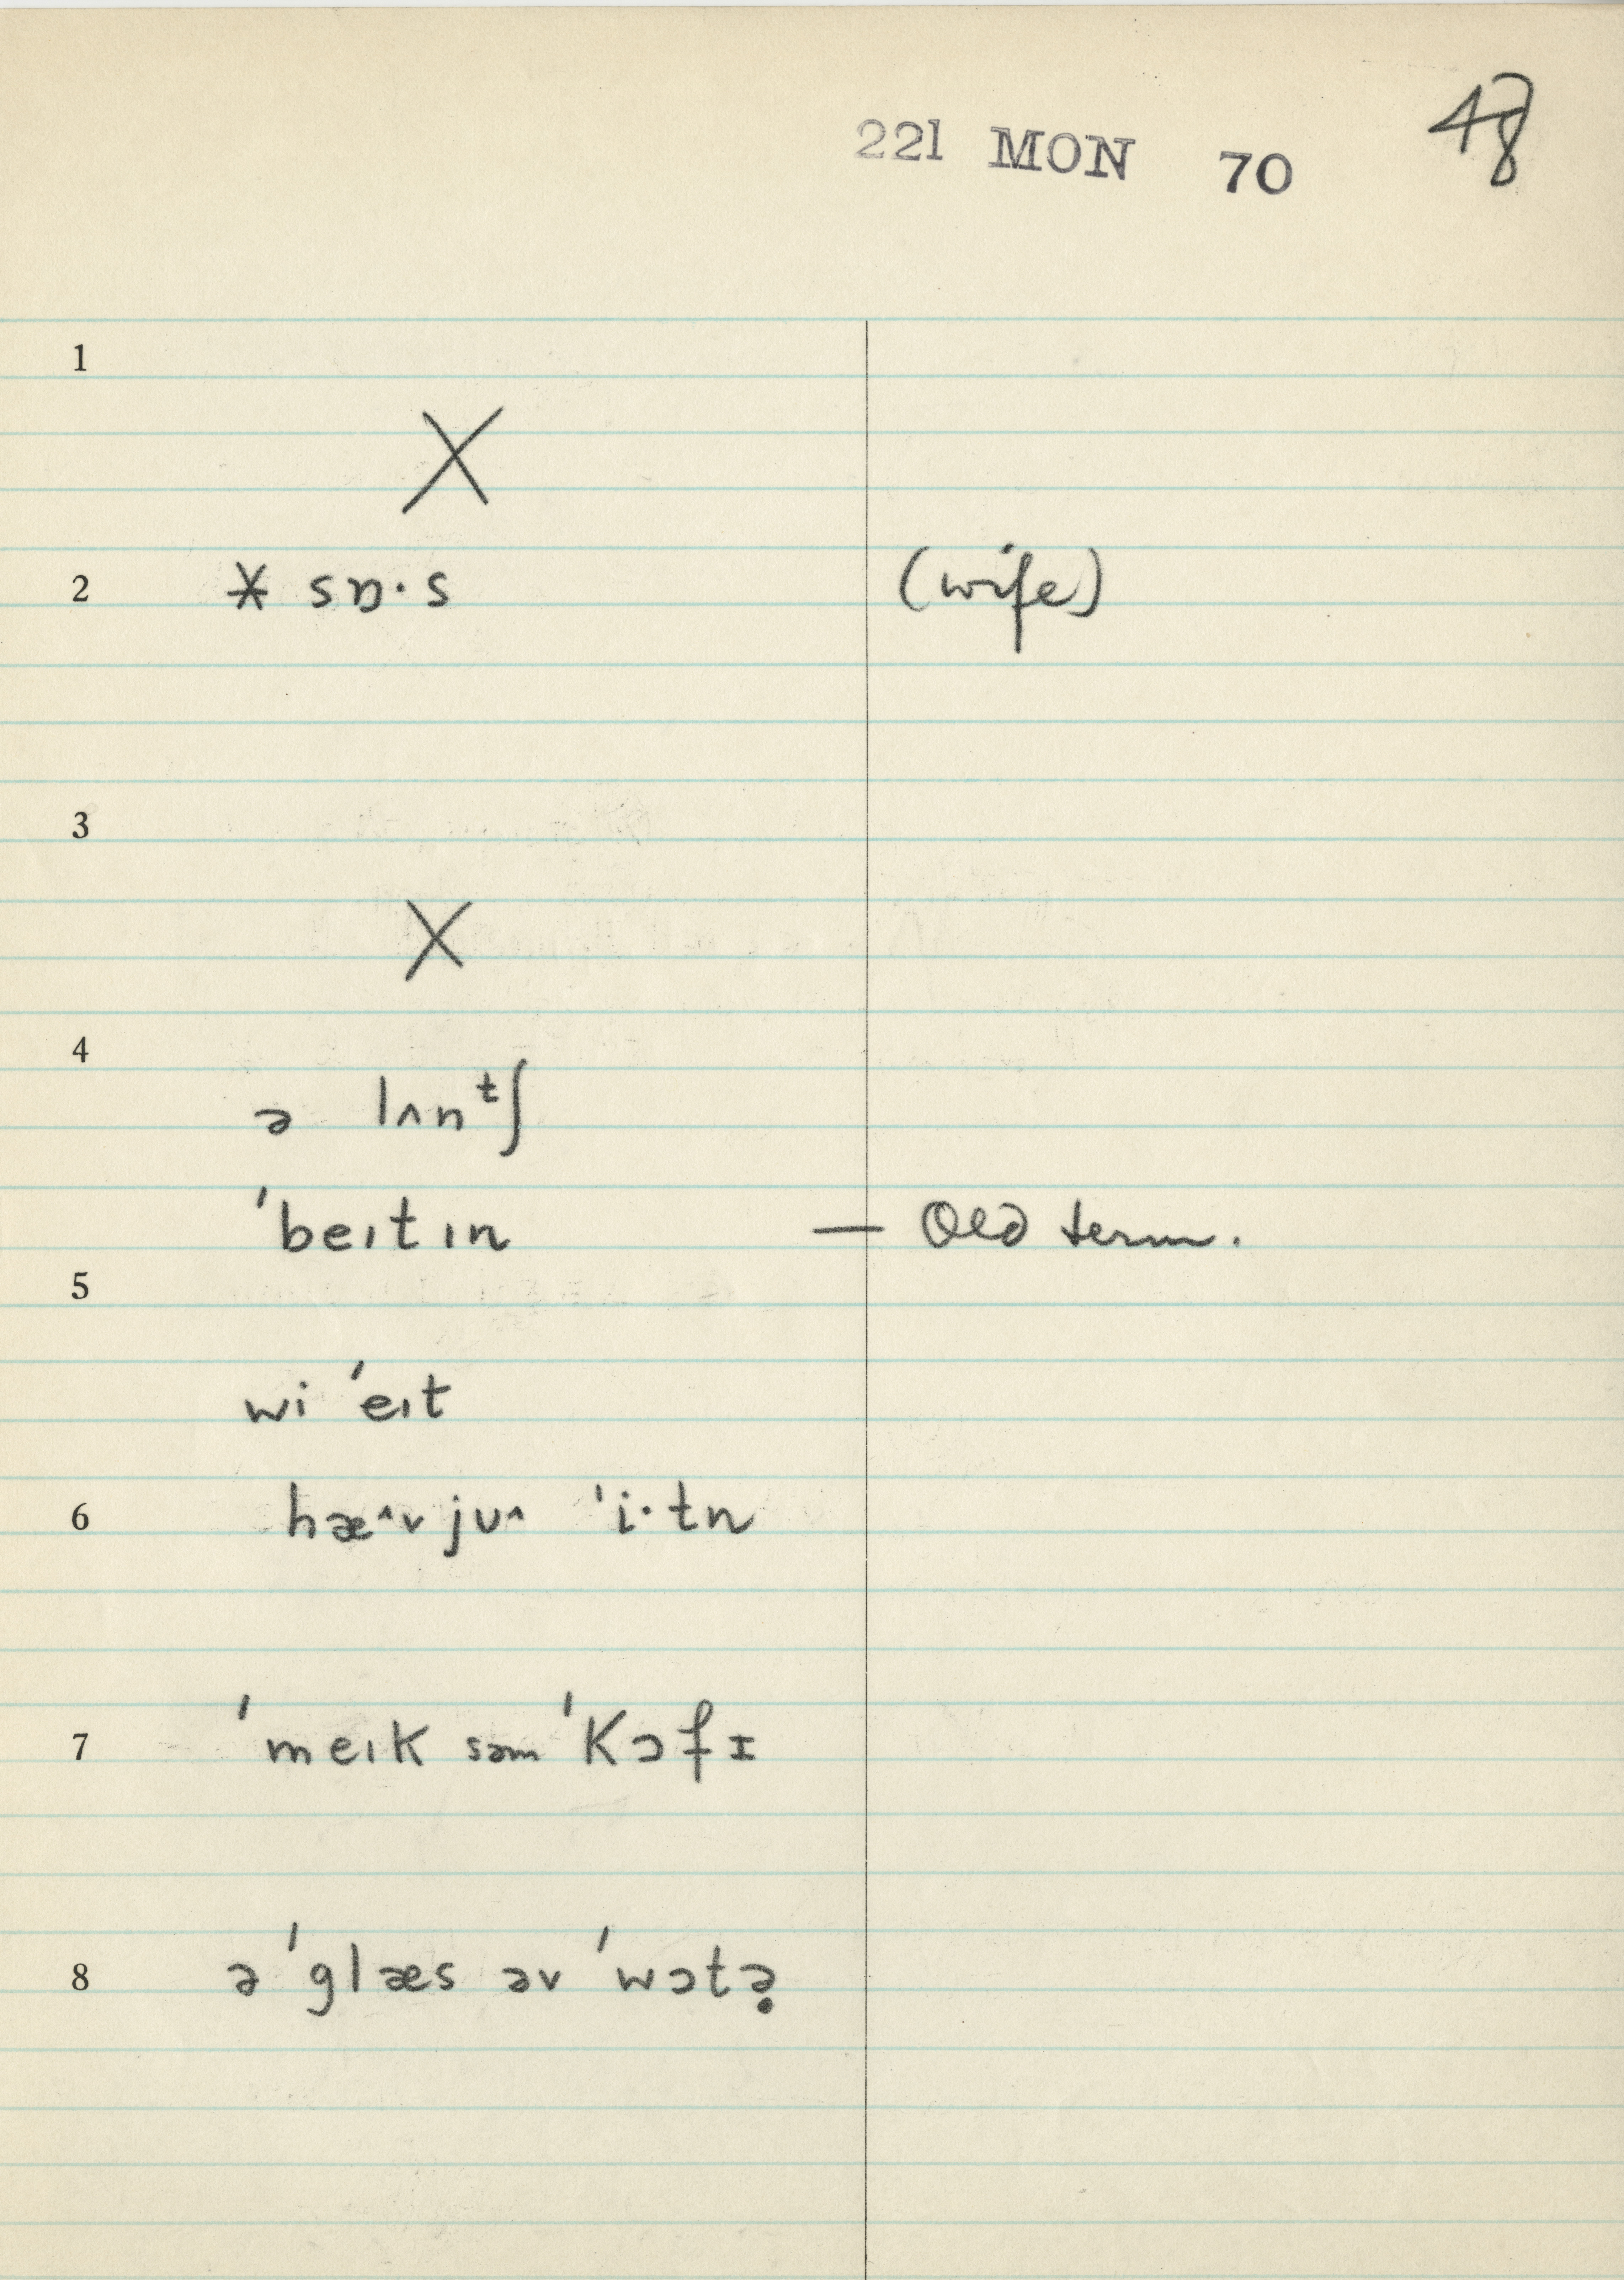 221 MON 70 48
1
X
2 * sɒ·s (wife)
3
X
4
ə lʌnᵗʃ
ˈbeɪtɪn — Old term.
5
wi ˈeɪt
6 hæ^v ju^ ˈi·tn
7 ˈmeɪk səm ˈkɔfɪ
8 ə ˈglæs əv ˈwɔtə̣